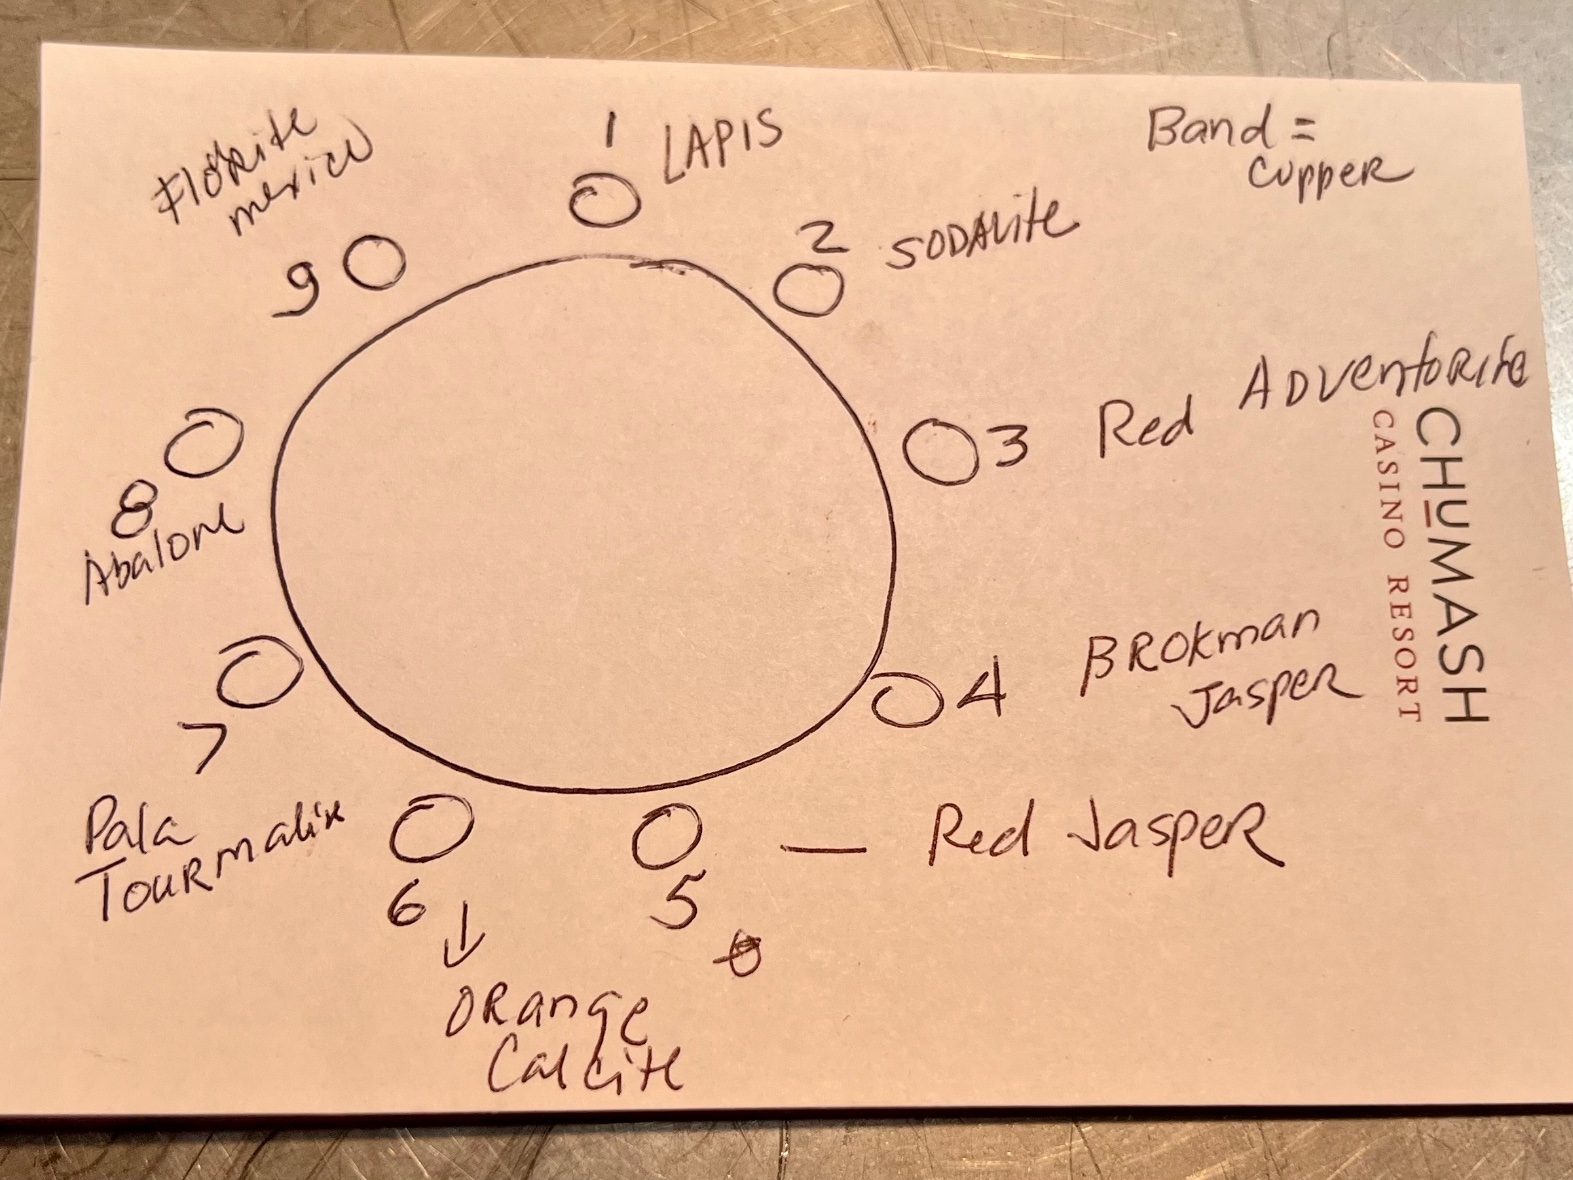 1 LAPIS
2 SODAlite
3 Red ADVentoRite
4 BROKman
JaspeR
5 — Red JaspeR
6
ORange
Calcite
7
Pala
TOURmaline
8
Abalone
9
mexico
Band =
CuppeR
CHUMASH
CASINO RESORT